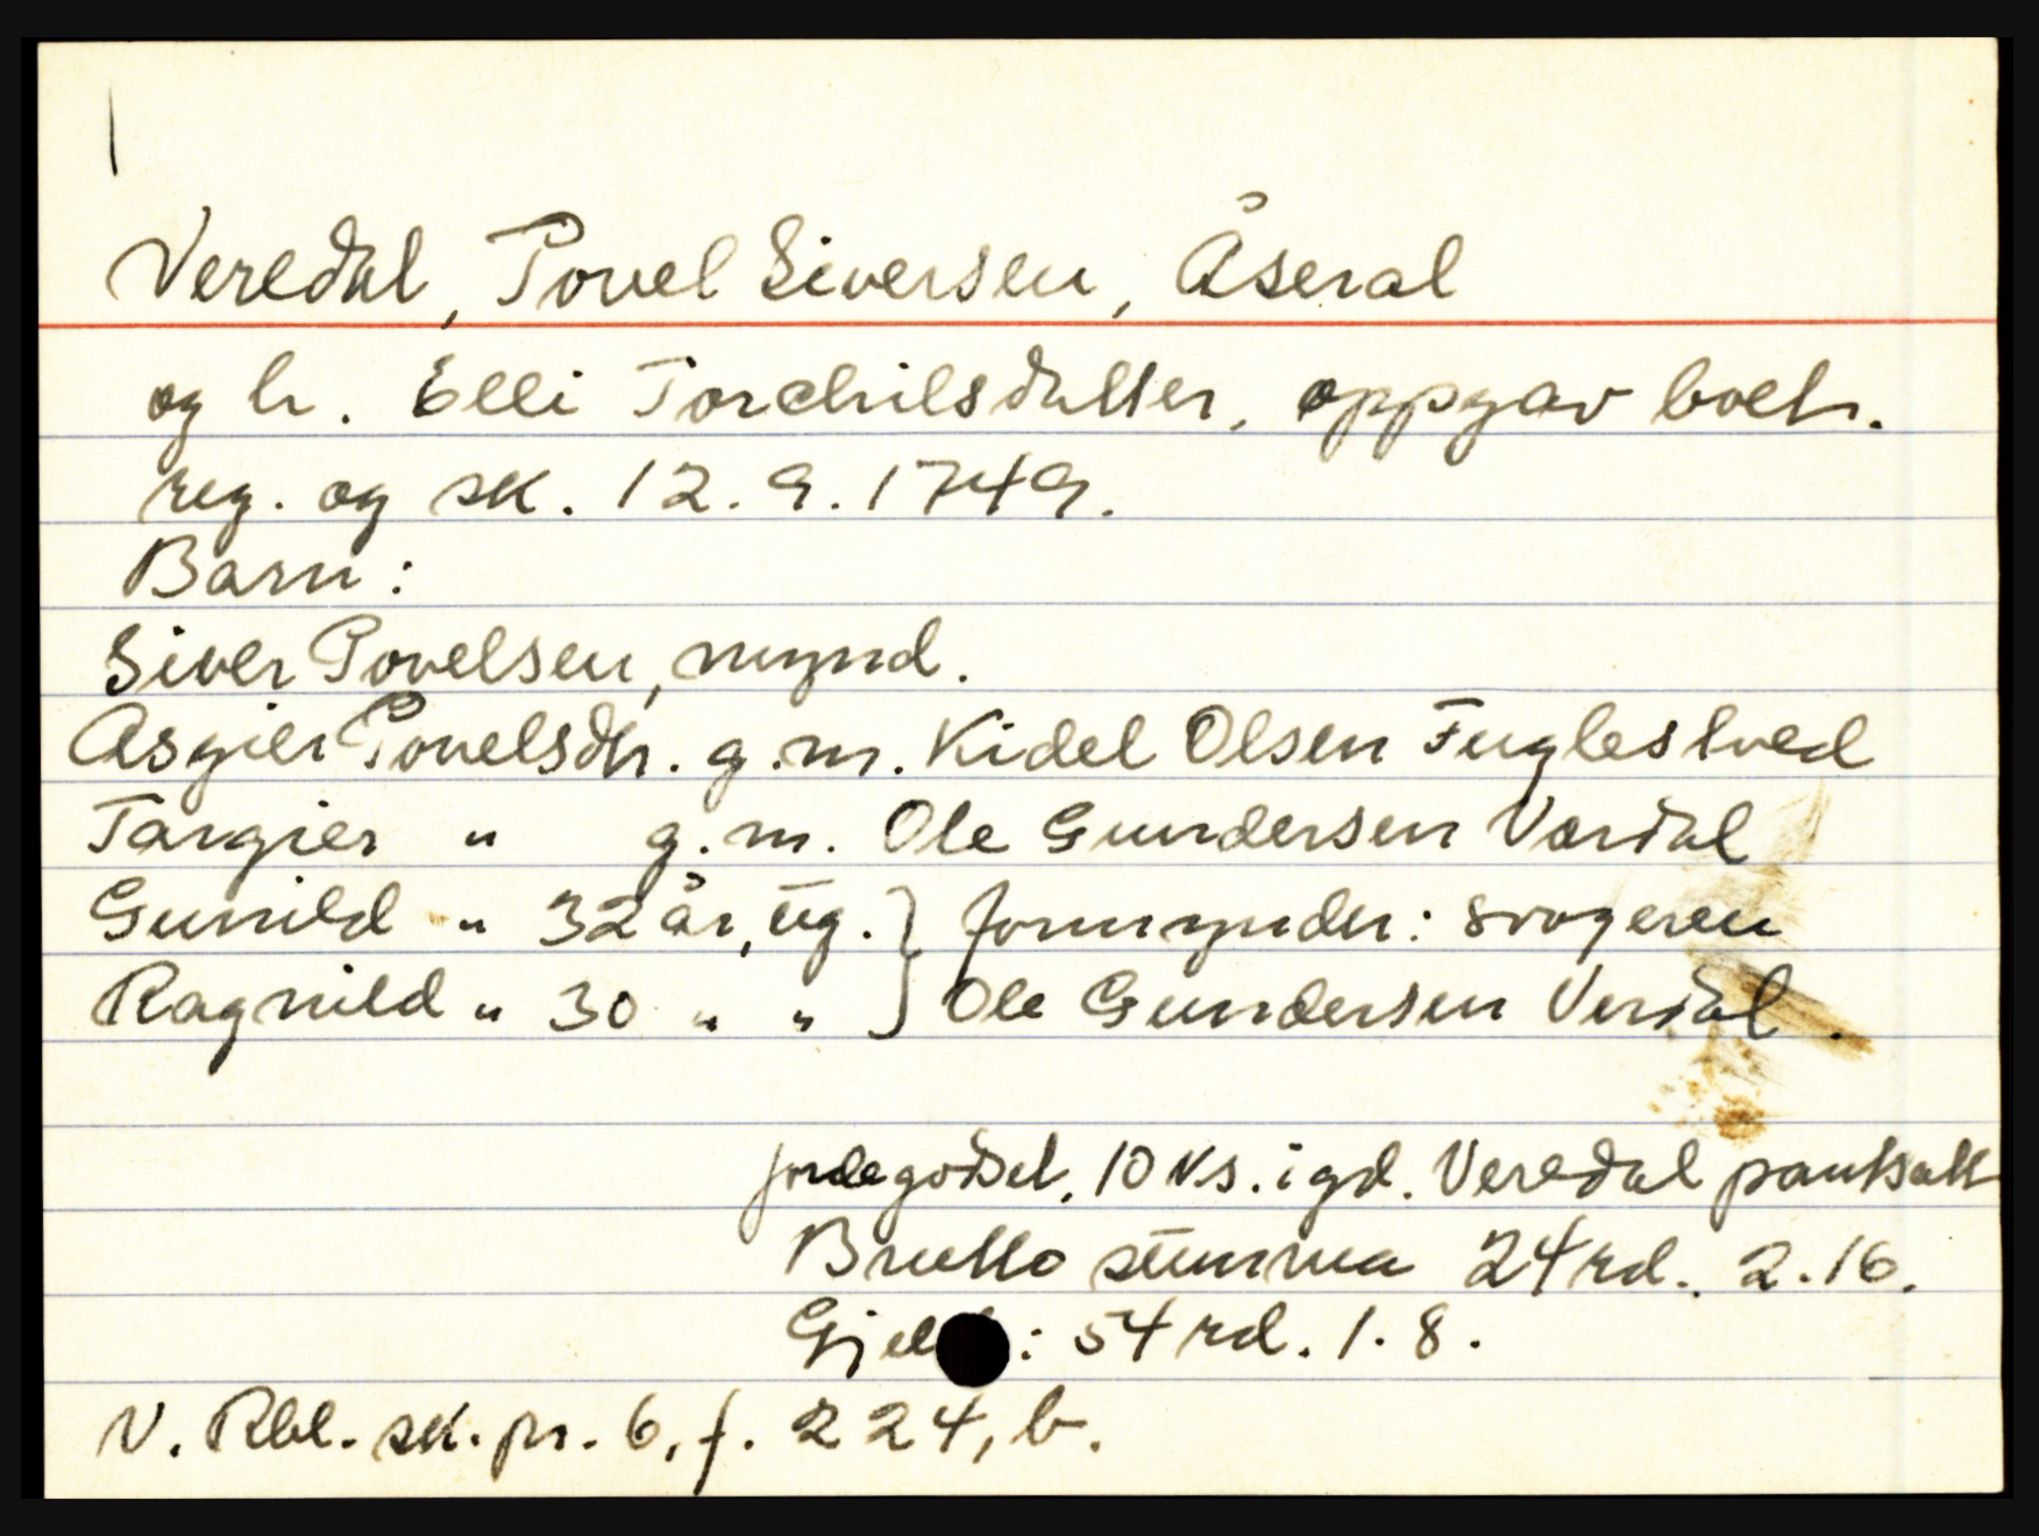 Veredal, Povel Siversen, Åseral
og h. Elli Torchilsdatter, oppgav boets.
reg. og sk. 12.9.1749.
Barn:
Siver Povelsen, mynd.
Asgier Povelsdtr. g.m. Kidel Olsen Fuglestved
Targier " g.m. Ole Gundersen Vardal
Gunild " 32 år, ug. } formynder: svogeren
Ragnild " 30 " " } Ole Gundersen Verdal.
jordegodset, 10 ks. i gd. Veredal pantsatt
Brutto summa 24 rd. 2.16.
Gjeld: 54 rd. 1.8.
V. Rbl. sk. pr. 6, f. 224, b.